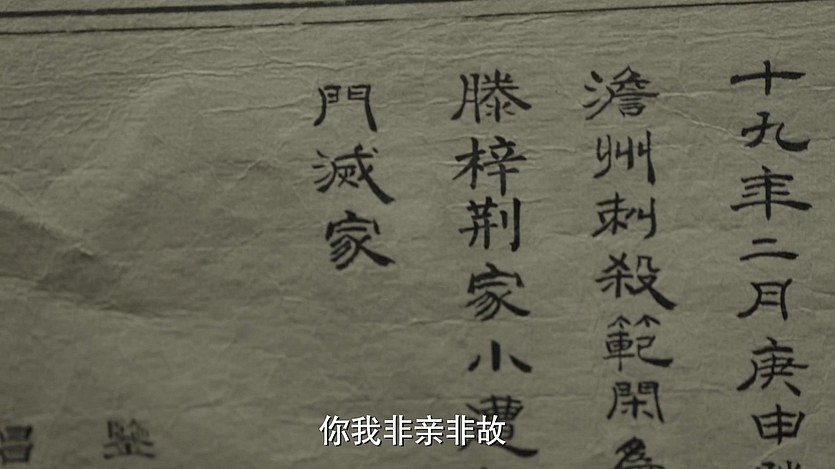 十九年二月庚申
澹州刺殺範閑為
滕梓荆家小遭
門滅家
鑒
你我非亲非故